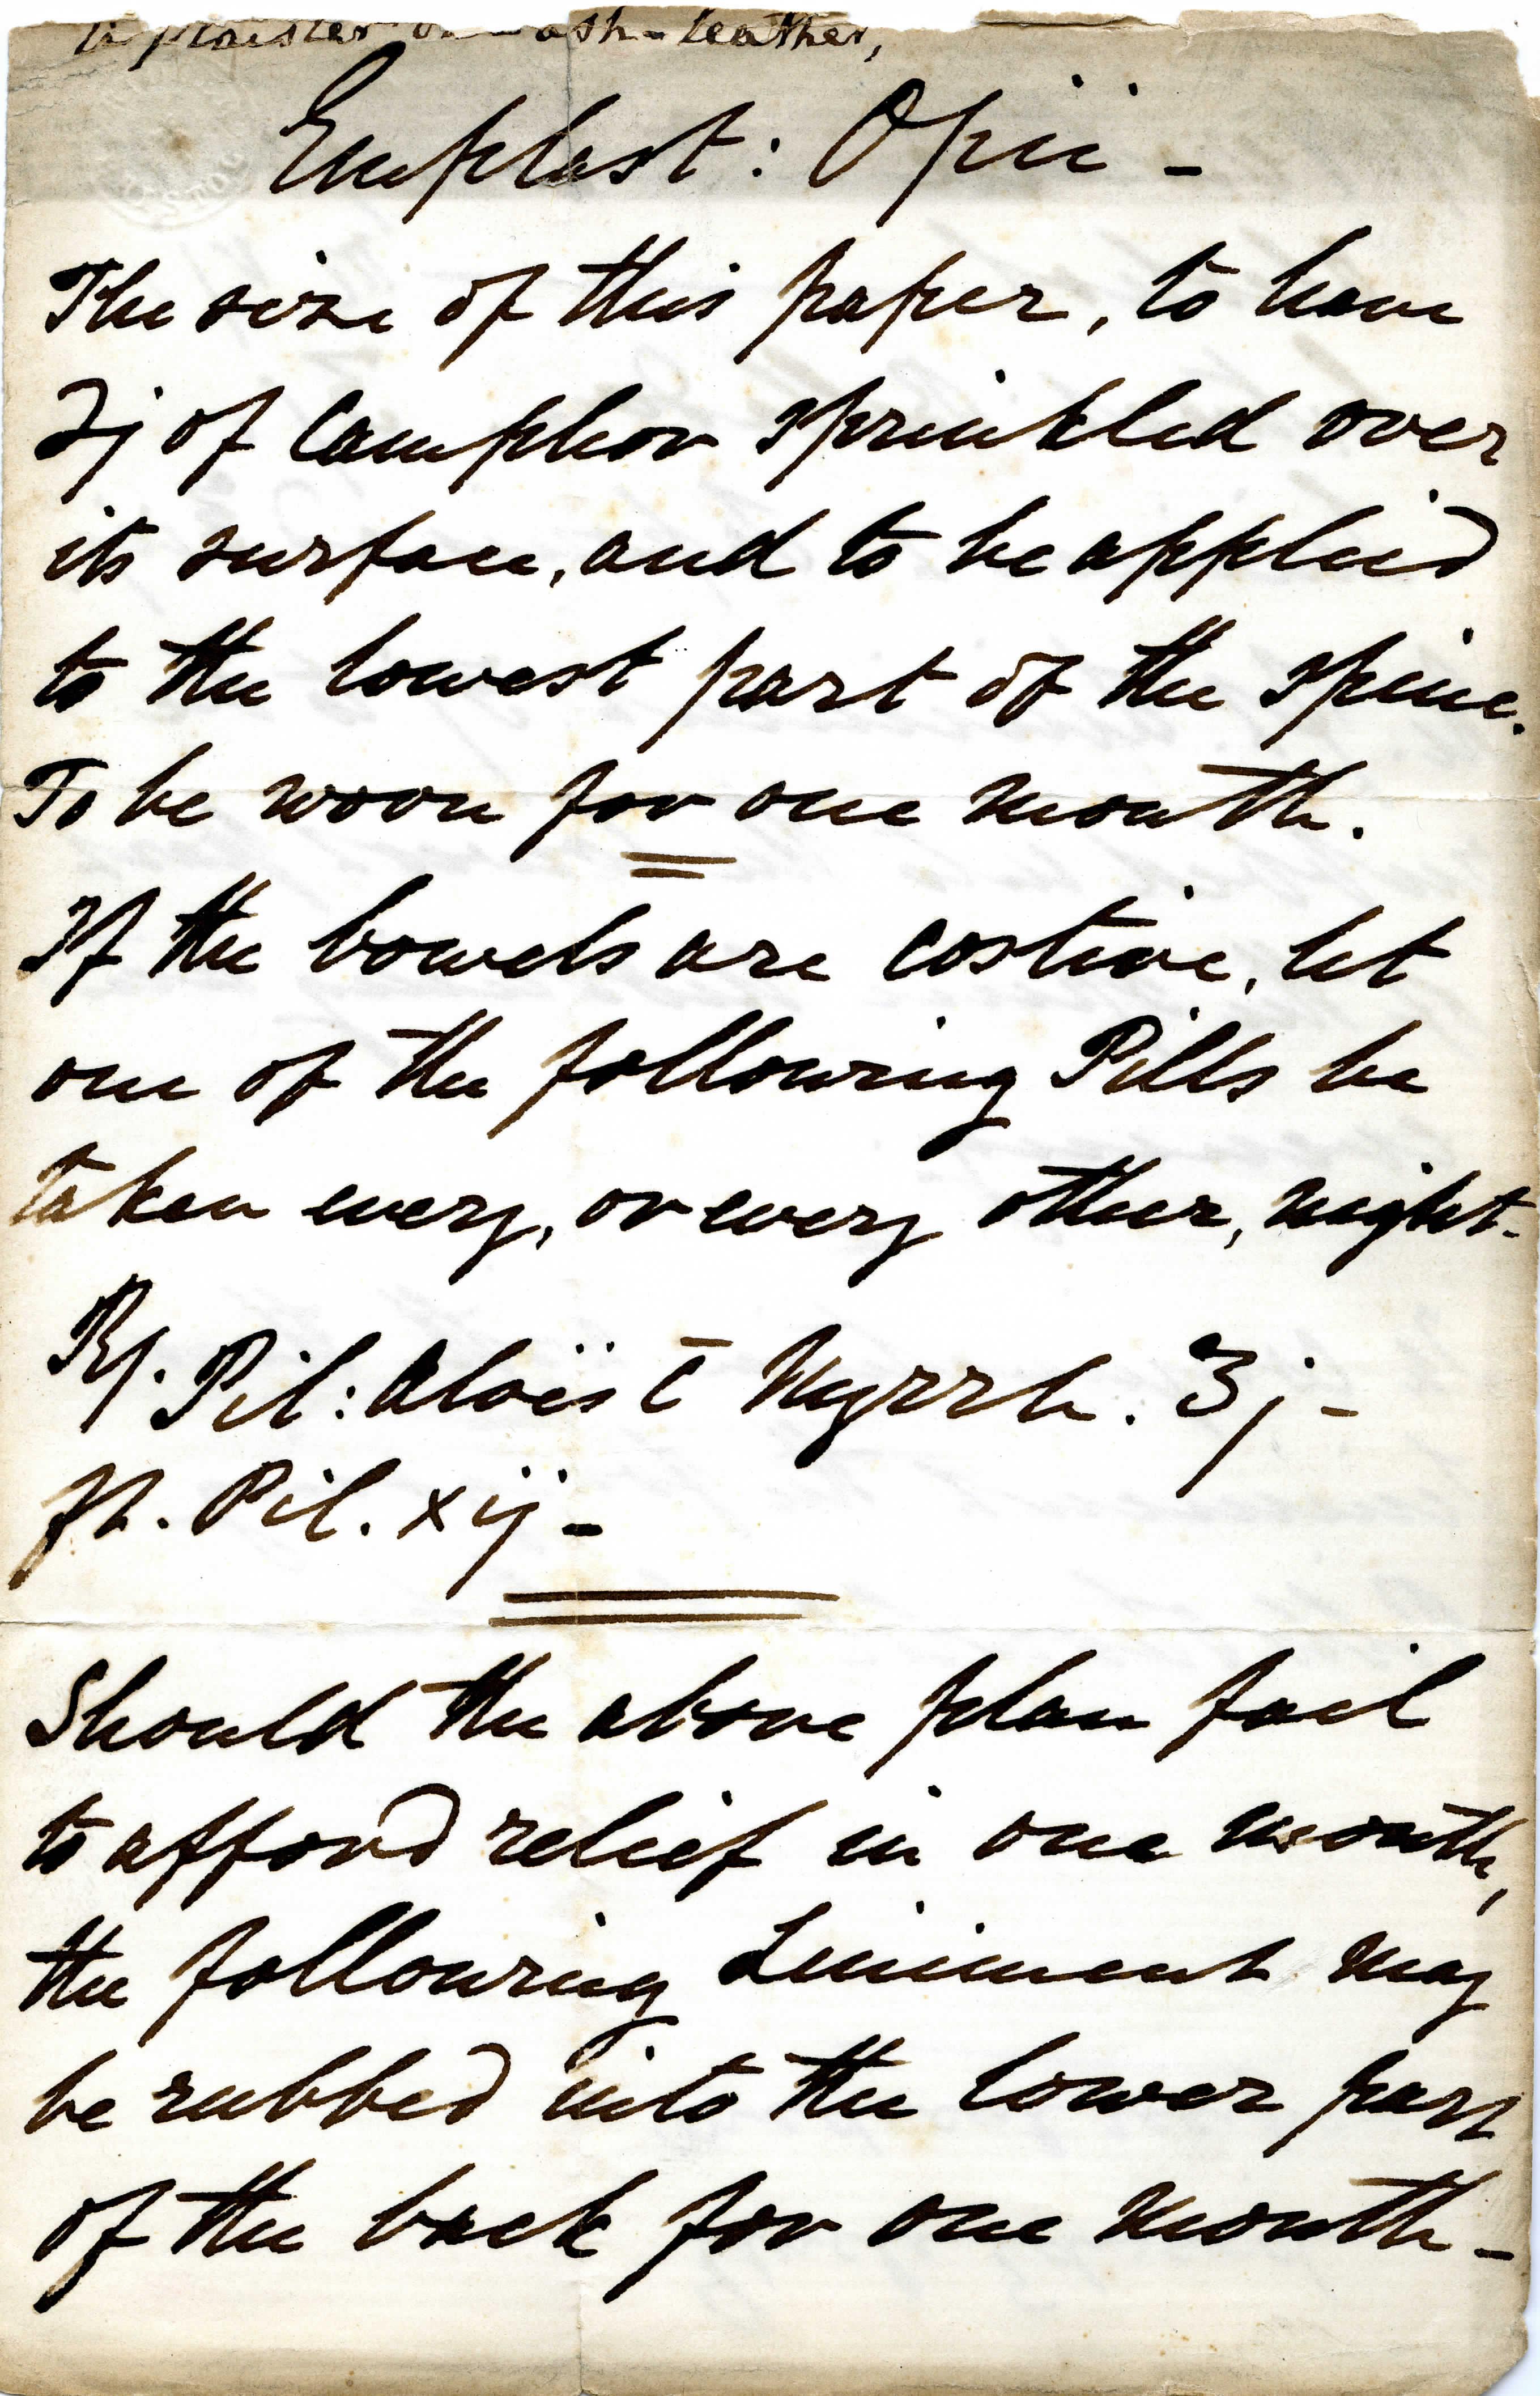 plaister on wash-leather,
Emplast: Opii -
The size of this paper, to have
ʒj of Camphor sprinkled over
its surface, and to be applied
to the lowest part of the spine.
To be worn for one month.
If the bowels are costive, let
one of the following Pills be
taken every, or every other, night.
℞. Pil: Aloës c̄ Myrrh. ʒj -
ft. Pil. xij -
Should the above plan fail
to afford relief in one month,
the following Liniment may
be rubbed into the lower part
of the back for one month -